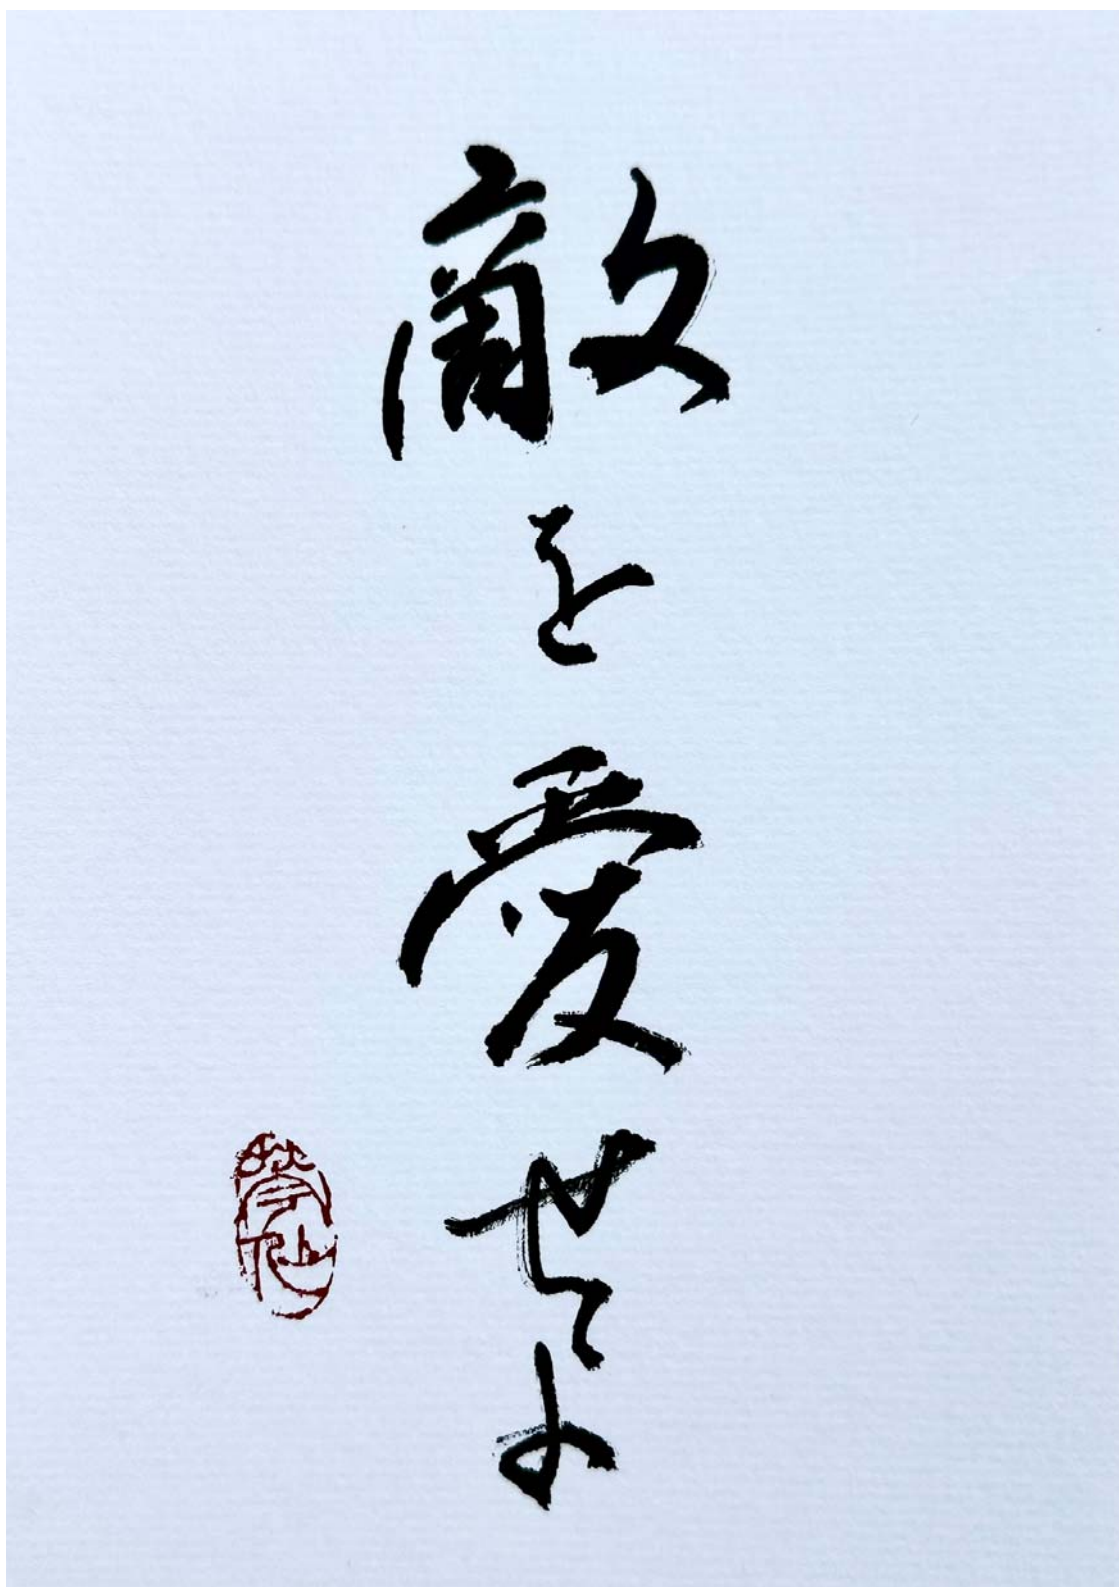 敵を愛せよ